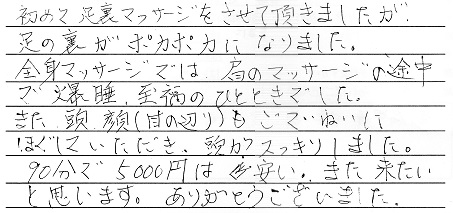 初めて足裏マッサージをさせて頂きましたが、
足の裏がポカポカになりました。
全身マッサージでは、肩のマッサージの途中
で爆睡、至福のひとときでした。
また、頭、顔(目の辺り)もごていねいに
ほぐしていただき、頭がスッキリしました。
90分で5000円は安い。また来たい
と思います。ありがとうございました。